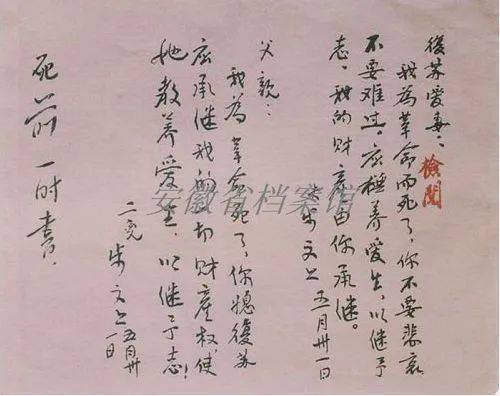 復苏愛妻：
檢閱
我為革命而死了，你不要悲哀
不要难过。应極养爱生，以继予
志。我的财產由你承继。
夫步文上 五月卅一日
父親：
我為革命死了，你媳復苏
应承继我的一切财產权，使
她教养爱生，以继予志！
二児 步文上 五月卅一日
死前一时書．
安徽省档案馆